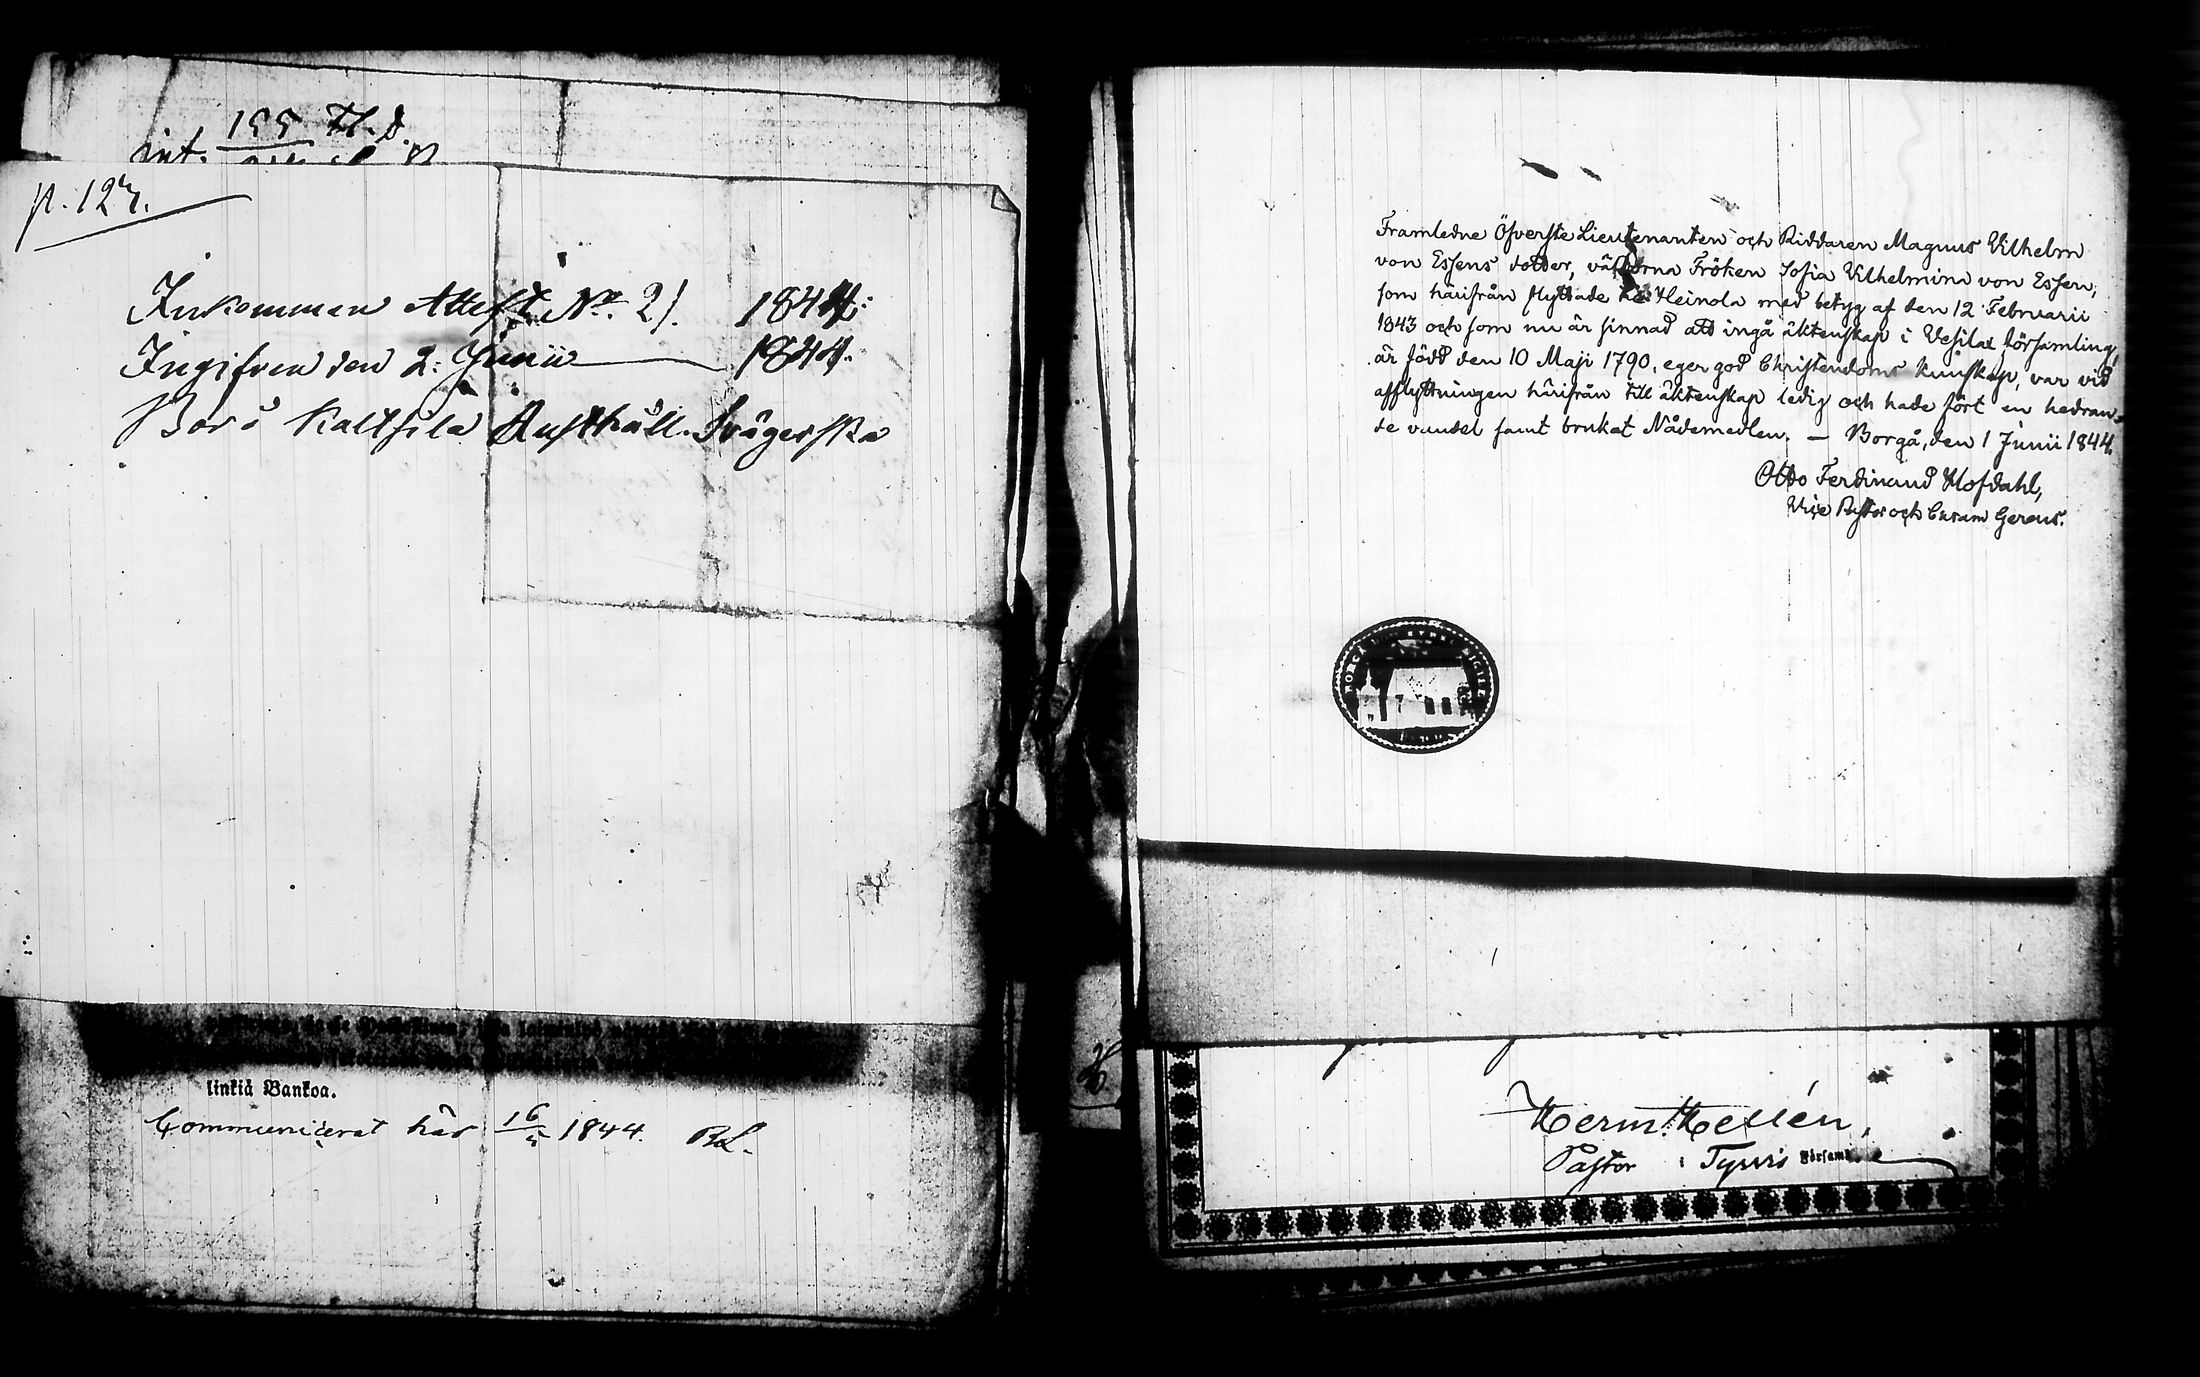 155 Fl. D.
int.
p. 127.
Inkommen Attest No. 21. 1844.
Ingifven den 2. Junii 1844.
Bor å Kaltsila Rusthåll. Svägerska
linkiä Bankoa.
Communicerat här 16/5 1844. BL.
Framledne Öfverste Lieutenanten och Riddaren Magnus Vilhelm
von Essens dotter, välborna Fröken Sofia Vilhelmina von Essen,
som härifrån flyttade till Heinola med betyg af den 12 Februarii
1843 och som nu är sinnad att ingå äktenskap i Vesilax församling,
är född den 10 Maji 1790, eger god Christendoms kunskap, var vid
afflyttningen härifrån till äktenskap ledig och hade fört en hedran-
de vandel samt brukat Nådemedlen. — Borgå, den 1 Junii 1844.
Otto Ferdinand Hofdahl,
Vice Pastor och Curam Gerens.
BORGÅ KYRK SIGILL
Herm. Hellén,
Pastor i Tyrvis Församl